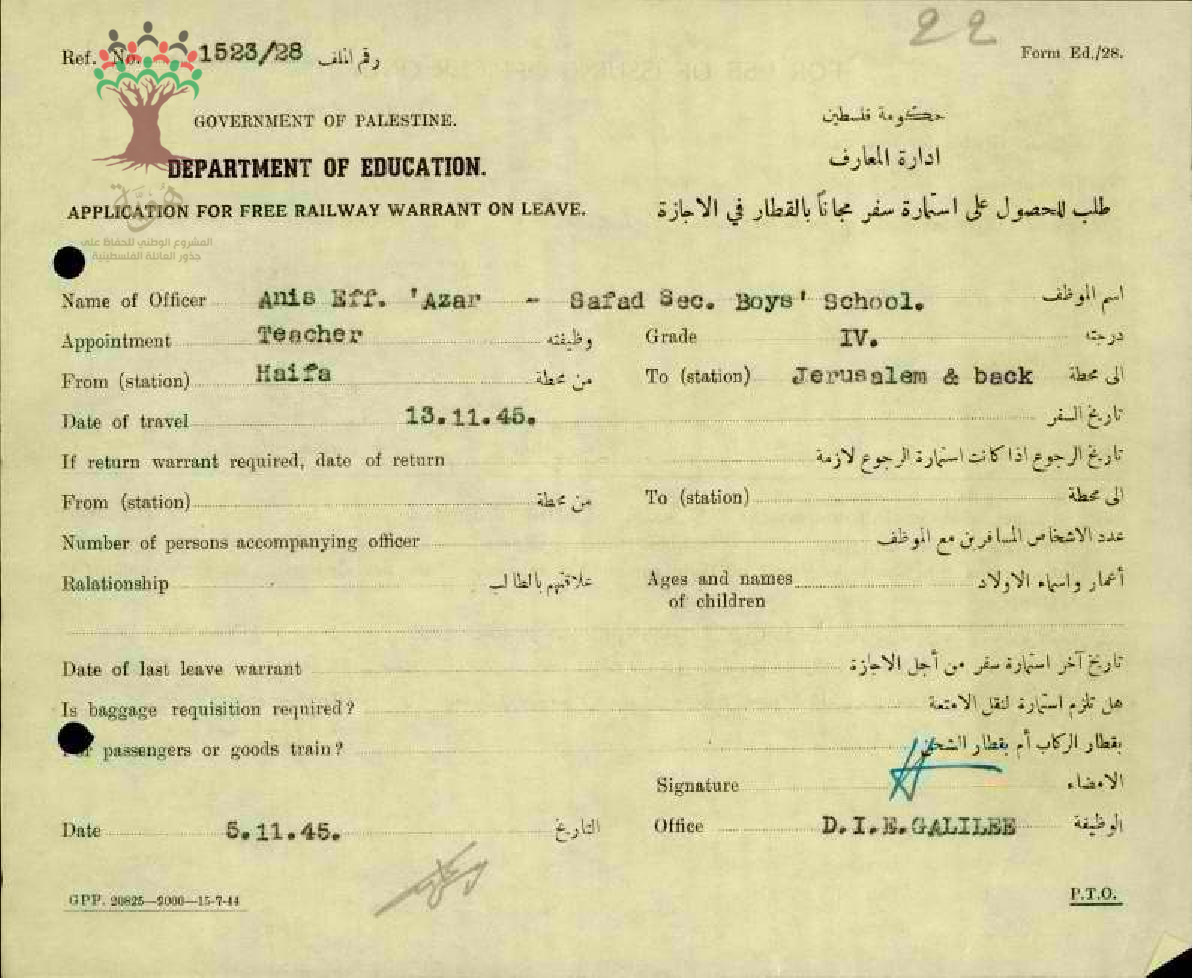 22
Ref. No. 1523/28 رقم الملف
Form Ed./28.
GOVERNMENT OF PALESTINE.
حكومة فلسطين
DEPARTMENT OF EDUCATION.
ادارة المعارف
APPLICATION FOR FREE RAILWAY WARRANT ON LEAVE.
طلب للحصول على استمارة سفر مجاناً بالقطار في الاجازة
هُوِيَّة
المشروع الوطني للحفاظ على
جذور العائلة الفلسطينية
Name of Officer Anis Eff. 'Azar - Safad Sec. Boys' School. اسم الموظف
Appointment Teacher وظيفته Grade IV. درجته
From (station) Haifa من محطة To (station) Jerusalem & back الى محطة
Date of travel 13.11.45. تاريخ السفر
If return warrant required, date of return تاريخ الرجوع اذا كانت استمارة الرجوع لازمة
From (station) من محطة To (station) الى محطة
Number of persons accompanying officer عدد الاشخاص المسافرين مع الموظف
Ralationship علاقتهم بالطالب Ages and names أعمار واسماء الاولاد
of children
Date of last leave warrant تاريخ آخر استمارة سفر من أجل الاجازة
Is baggage requisition required? هل تلزم استمارة لنقل الامتعة
For passengers or goods train? بقطار الركاب أم بقطار الشحن
Signature الامضاء
Date 5.11.45. التاريخ Office D.I.E.GALILEE الوظيفة
GPP. 20825—2000—15-7-44
P.T.O.